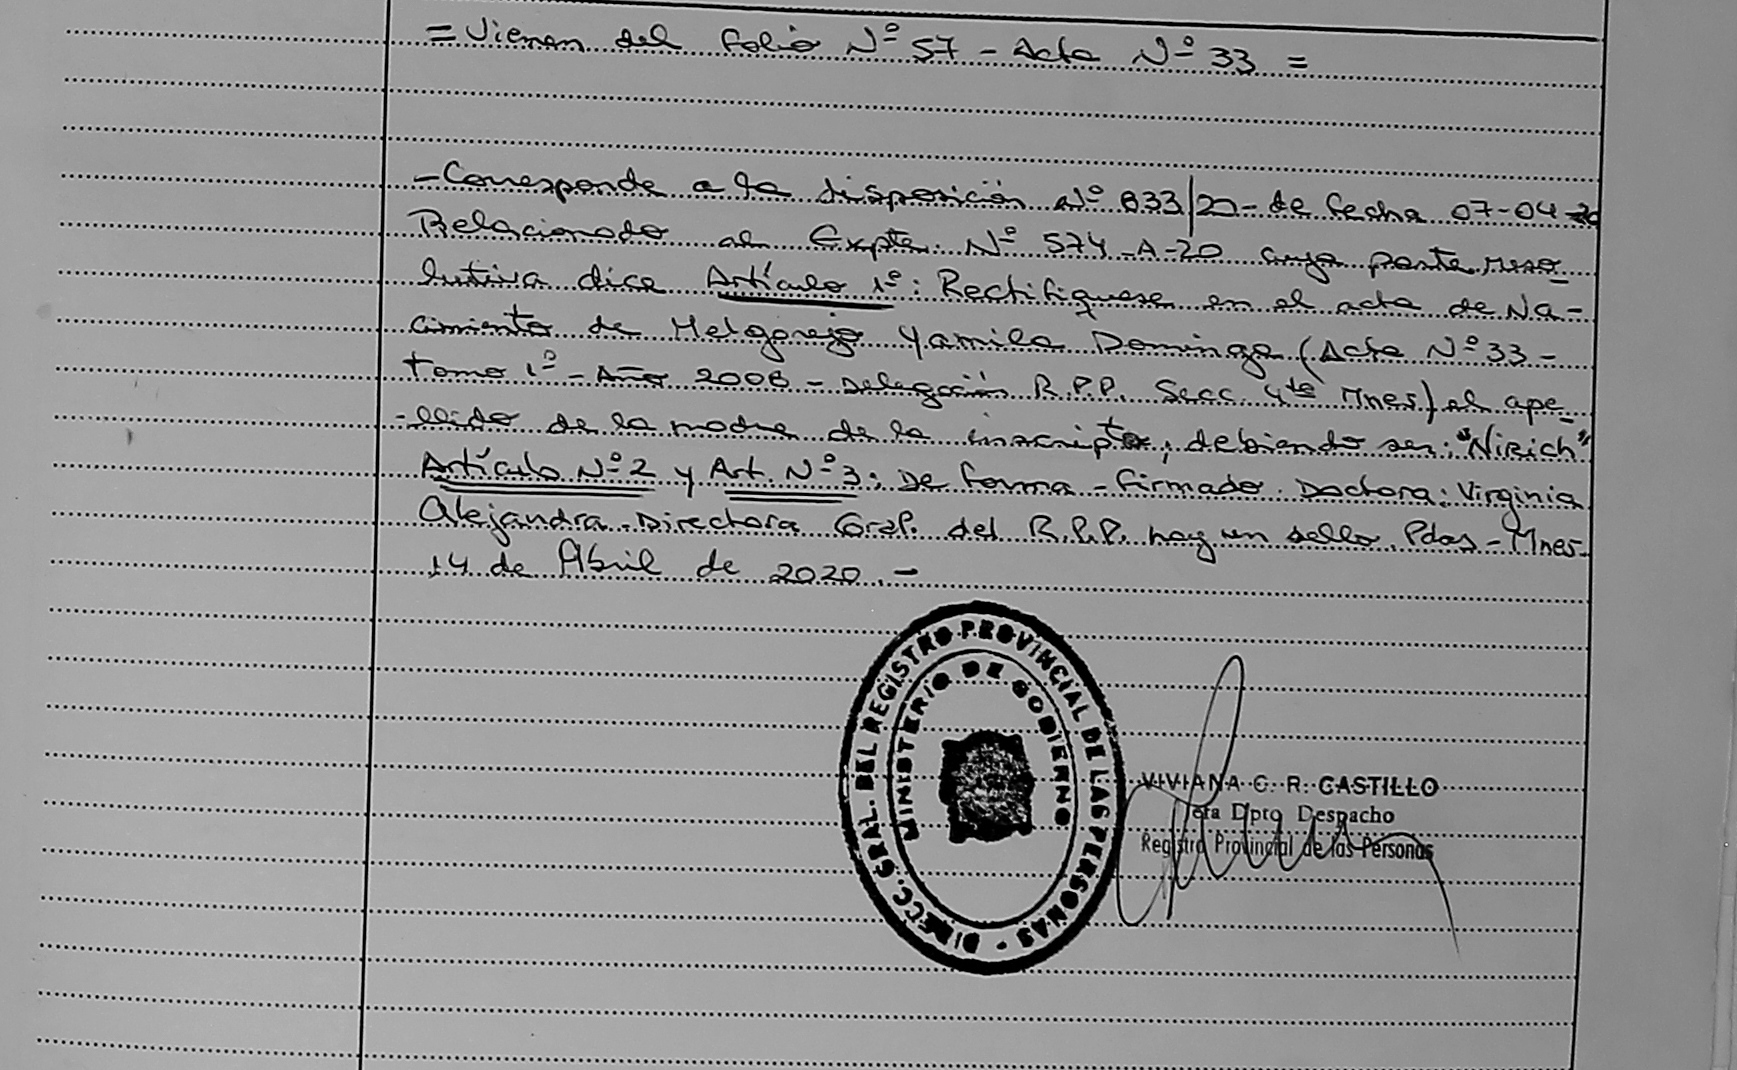 = Vienen del folio Nº 57 - Acta Nº 33 =
- Corresponde a la disposición Nº 833/20 - de fecha 07-04-20
Relacionado al Expte. Nº 574-A-20 cuya parte reso
lutiva dice Artículo 1º: Rectifíquese en el acta de Na-
cimiento de Melgarejo Yamila Dominga (Acta Nº 33 -
Tomo 1º - Año 2006 - Delegación R.P.P. Secc. 4ta Mnes) el ape
-llido de la madre de la inscripta, debiendo ser: "Nirich"
Artículo Nº 2 y Art. Nº 3: De forma - firmado. Doctora: Virginia
Alejandra. Directora Gral. del R.P.P. hay un sello. Pdas - Mnes-
14 de Abril de 2020. -
DIRECC. GRAL. DEL REGISTRO PROVINCIAL DE LAS PERSONAS -
MINISTERIO DE GOBIERNO
VIVIANA C. R. CASTILLO
Jefa Dpto Despacho
Registro Provincial de las Personas